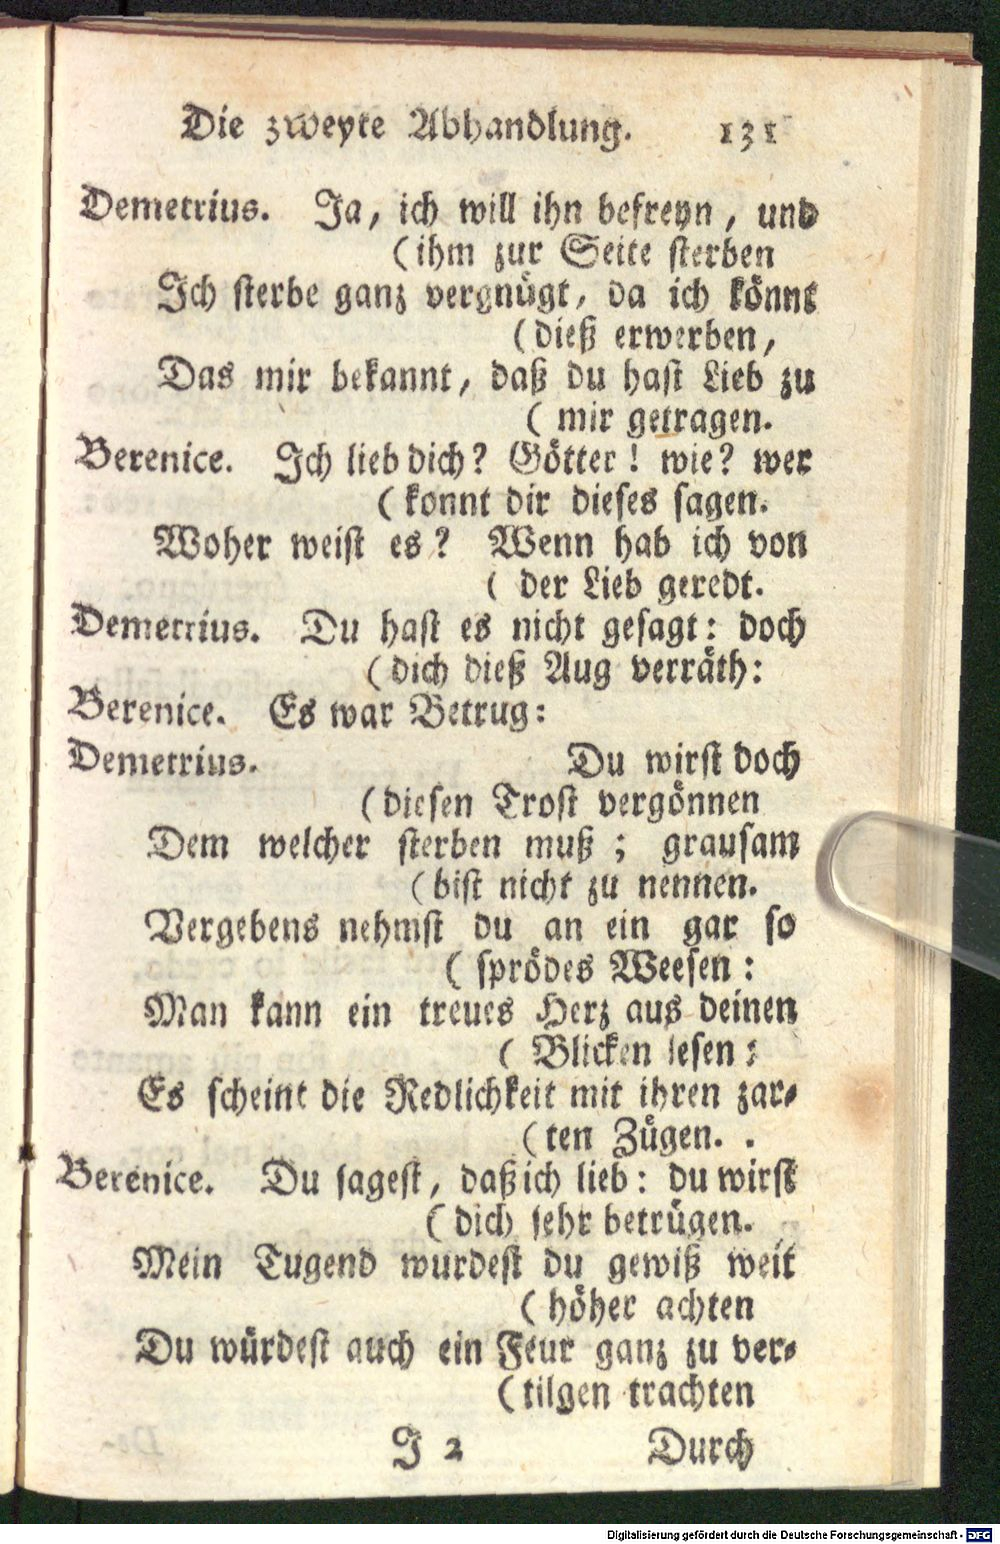 Die zweyte Abhandlung. 131
Demetrius. Ja, ich will ihn befreyn, und
(ihm zur Seite sterben
Ich sterbe ganz vergnügt, da ich könnt
(dieß erwerben,
Das mir bekannt, daß du hast Lieb zu
(mir getragen.
Berenice. Ich lieb dich? Götter! wie? wer
(konnt dir dieses sagen.
Woher weist es? Wenn hab ich von
(der Lieb geredt.
Demetrius. Du hast es nicht gesagt: doch
(dich dieß Aug verräth:
Berenice. Es war Betrug:
Demetrius. Du wirst doch
(diesen Trost vergönnen
Dem welcher sterben muß; grausam
(bist nicht zu nennen.
Vergebens nehmst du an ein gar so
(sprödes Weesen:
Man kann ein treues Herz aus deinen
(Blicken lesen:
Es scheint die Redlichkeit mit ihren zar-
(ten Zügen.
Berenice. Du sagest, daß ich lieb: du wirst
(dich sehr betrügen.
Mein Tugend wurdest du gewiß weit
(höher achten
Du würdest auch ein Feur ganz zu ver-
(tilgen trachten
J 2 Durch
Digitalisierung gefördert durch die Deutsche Forschungsgemeinschaft - DFG